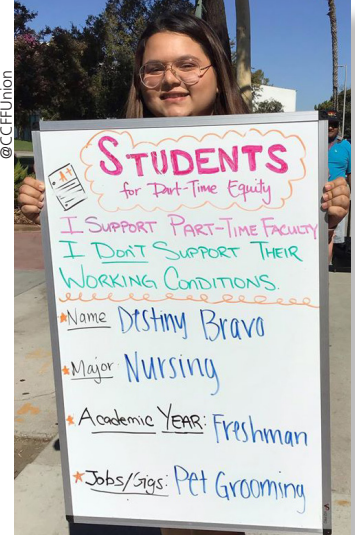 @CCFFUnion
A+
STUDENTS
for Part-Time Equity
I SUPPORT PART-TIME FACULTY
I DON'T SUPPORT THEIR
WORKING CONDITIONS.
Name Destiny Bravo
Major: Nursing
Academic YEAR: Freshman
Jobs/Gigs: Pet Grooming